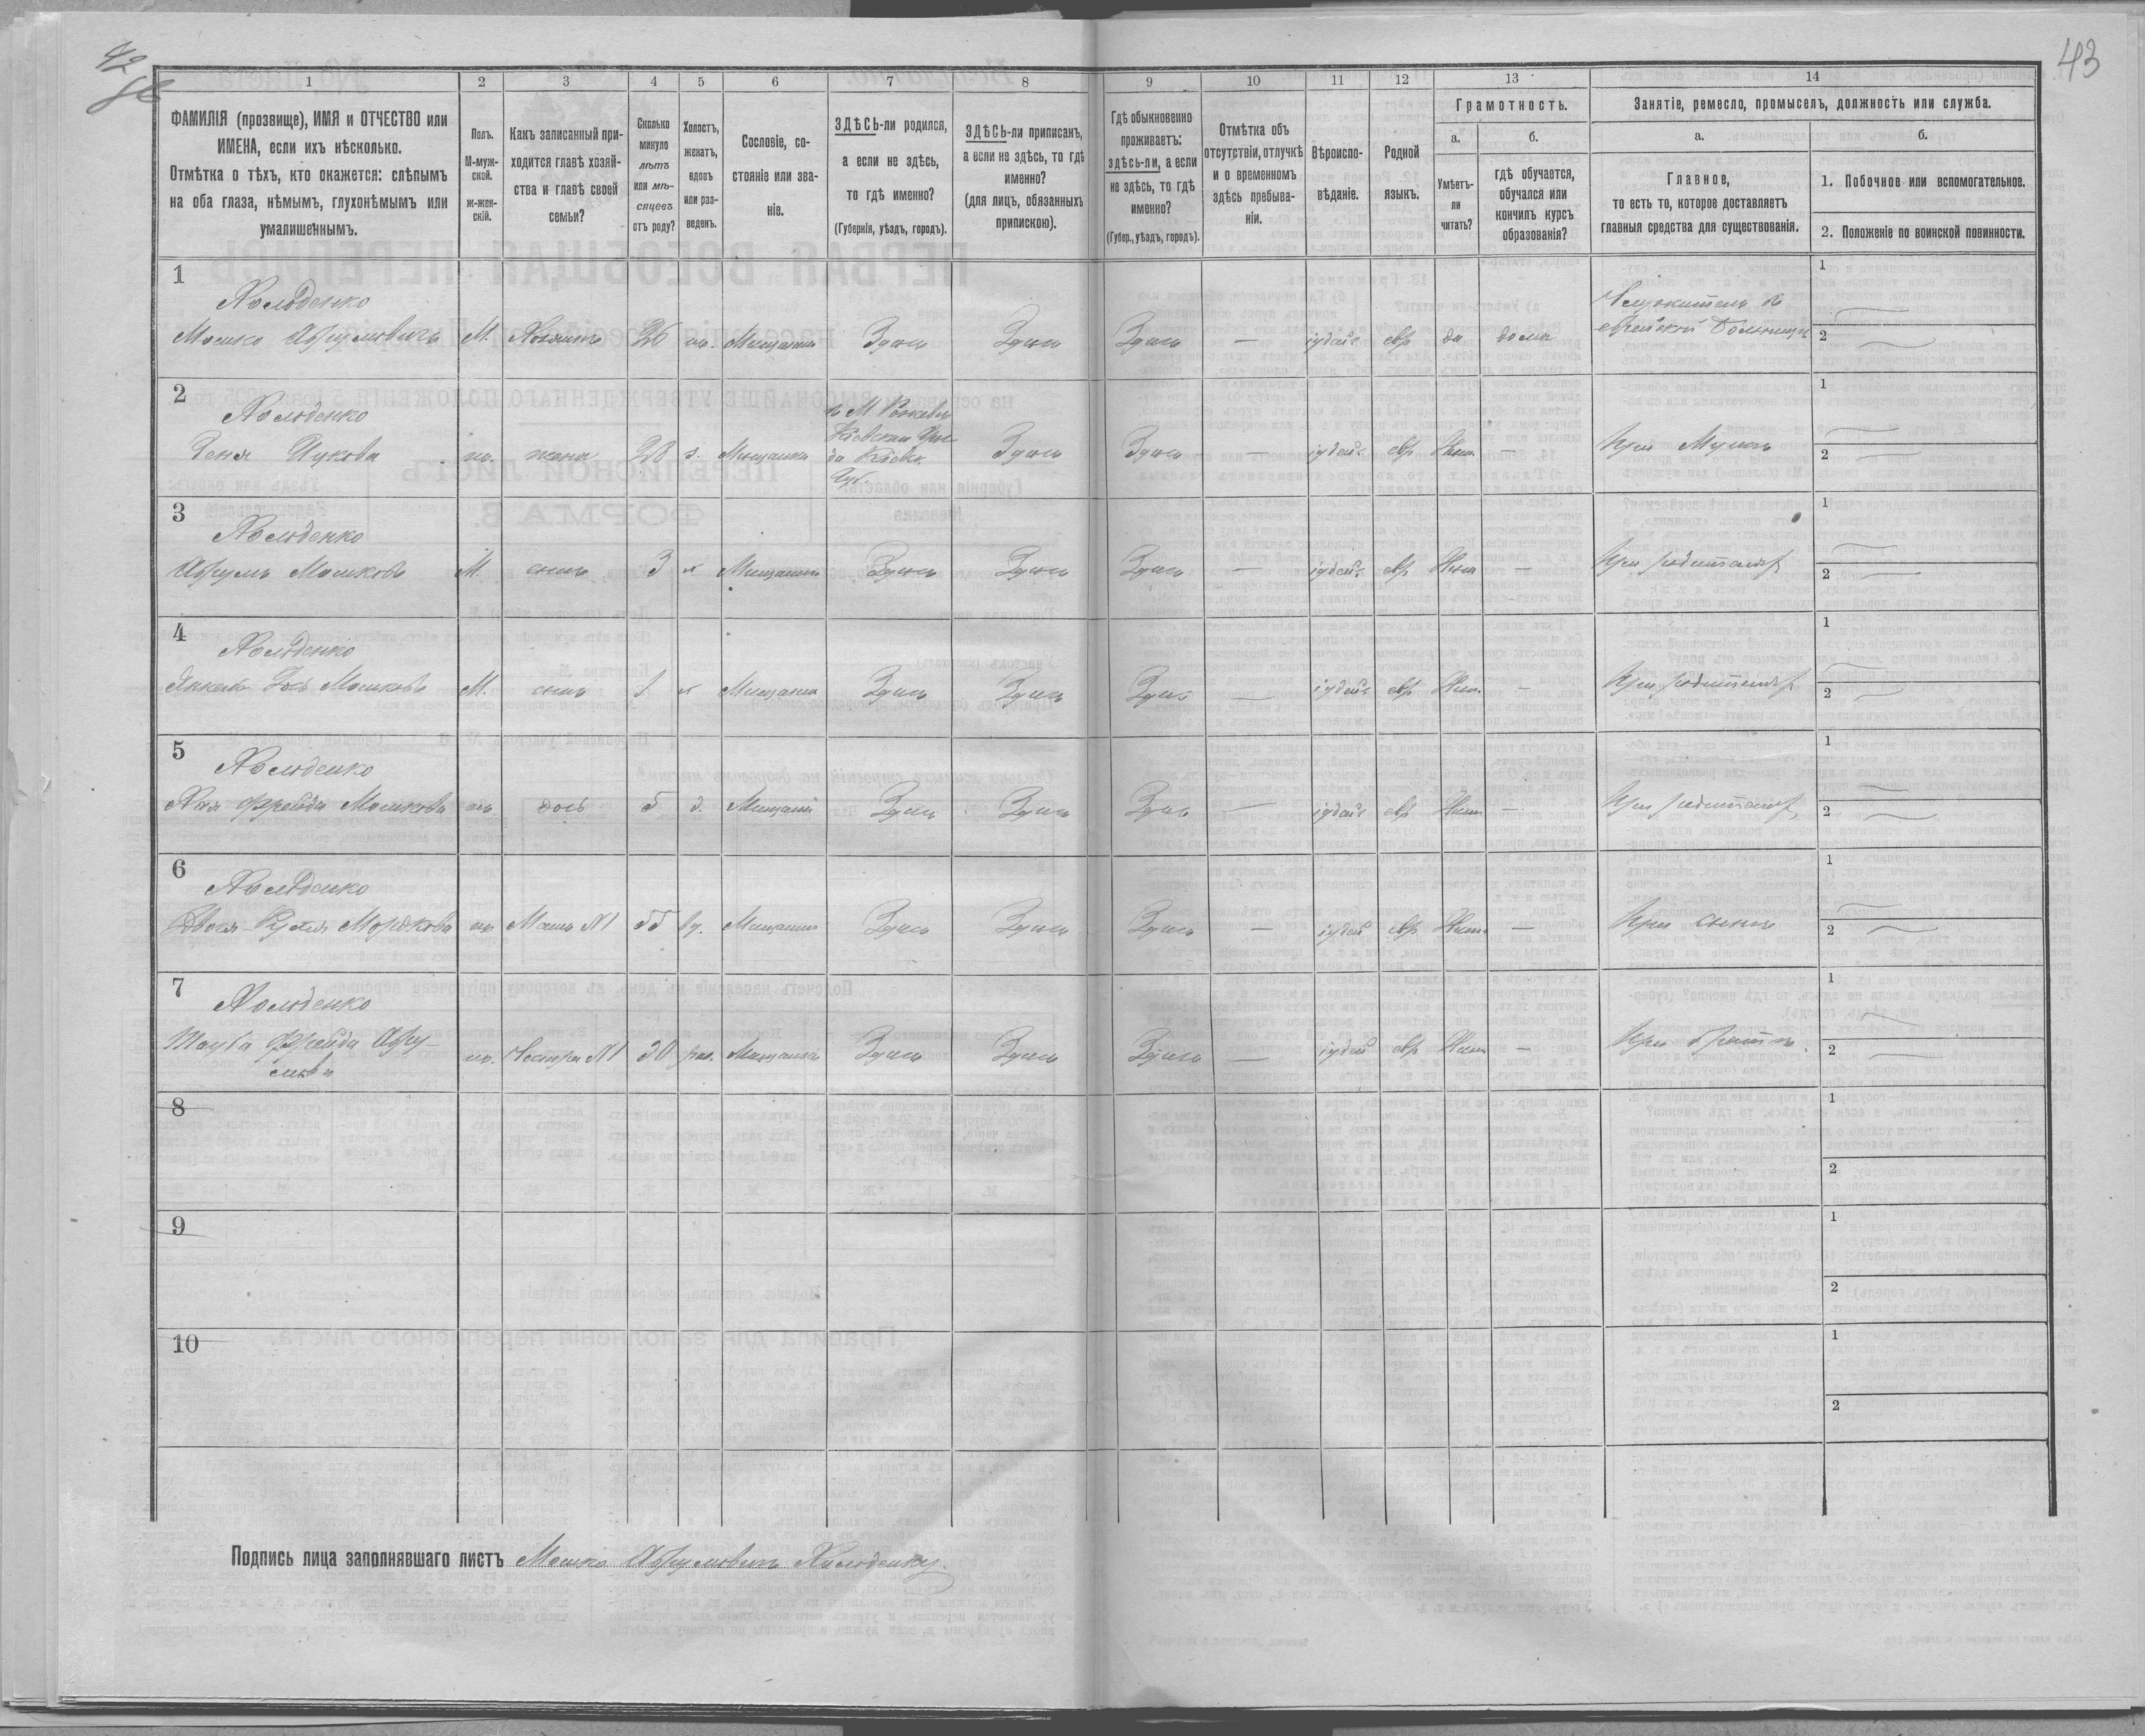 42
43
1
2
3
4
5
6
7
8
9
10
11
12
13
14
ФАМИЛІЯ (прозвище), ИМЯ и ОТЧЕСТВО или
ИМЕНА, если ихъ нѣсколько.
Отмѣтка о тѣхъ, кто окажется: слѣпымъ
на оба глаза, нѣмымъ, глухонѣмымъ или
умалишеннымъ.
Полъ.
М-муж-
ской.
ж-жен-
скій.
Какъ записанный при-
ходится главѣ хозяй-
ства и главѣ своей
семьи?
Сколько
минуло
лѣтъ
или мѣ-
сяцевъ
отъ роду?
Холостъ,
женатъ,
вдовъ
или раз-
веденъ.
Сословіе, со-
стояніе или зва-
ніе.
ЗДѢСЬ-ли родился,
а если не здѣсь,
то гдѣ именно?
(Губернія, уѣздъ, городъ).
ЗДѢСЬ-ли приписанъ,
а если не здѣсь, то гдѣ
именно?
(для лицъ, обязанныхъ
припискою).
Гдѣ обыкновенно
проживаетъ:
здѣсь-ли, а если
не здѣсь, то гдѣ
именно?
(Губер., уѣздъ, городъ).
Отмѣтка объ
отсутствіи, отлучкѣ
и о временномъ
здѣсь пребыва-
ніи.
Вѣроиспо-
вѣданіе.
Родной
языкъ.
Грамотность.
а.
б.
Умѣетъ-
ли
читать?
гдѣ обучается,
обучался или
кончилъ курсъ
образованія?
Занятіе, ремесло, промыселъ, должность или служба.
а.
б.
Главное,
то есть то, которое доставляетъ
главныя средства для существованія.
1. Побочное или вспомогательное.
2. Положеніе по воинской повинности.
1
Хользенко
Мошко Абрумовичъ М. Хозяинъ 26 ж. Мещанинъ Здѣсь Здѣсь Здѣсь — іудейс евр да дома
Служитель въ
еврейской больницѣ
1
2
2
Хользенко
Геня Ицкова ж. жена 28 з. Мещанка
Кіевской
Здѣсь Здѣсь — іудейс евр Нѣтъ — При Мужѣ
1
2
3
Хользенко
Абрумъ Мошковъ М. сынъ 3 х Мещанинъ Здѣсь Здѣсь Здѣсь — іудейс евр Нѣтъ — При родителях
1
2
4
Хользенко
Янкель Мошковъ М. сынъ 1 х Мещанинъ Здѣсь Здѣсь Здѣсь — іудейс евр Нѣтъ — При родителях
1
2
5
Хользенко
Хая Фрейда Мошкова ж. дочь 5 д. Мещанка Здѣсь Здѣсь Здѣсь — іудейс евр Нѣтъ — При родителях
1
2
6
Хользенко
Двося Мордкова ж Мать №1 55 вд. Мещанка Здѣсь Здѣсь Здѣсь — іудей евр Нѣтъ — При сынѣ
1
2
7
Хользенко
Тауба Фрейда Абру-
мова ж. Сестра №1 30 раз. Мещанка Здѣсь Здѣсь Здѣсь — іудей евр Нѣтъ — При братѣ
1
2
8
1
2
9
1
2
10
1
2
Подпись лица заполнявшаго листъ Мошко Абрумовичъ